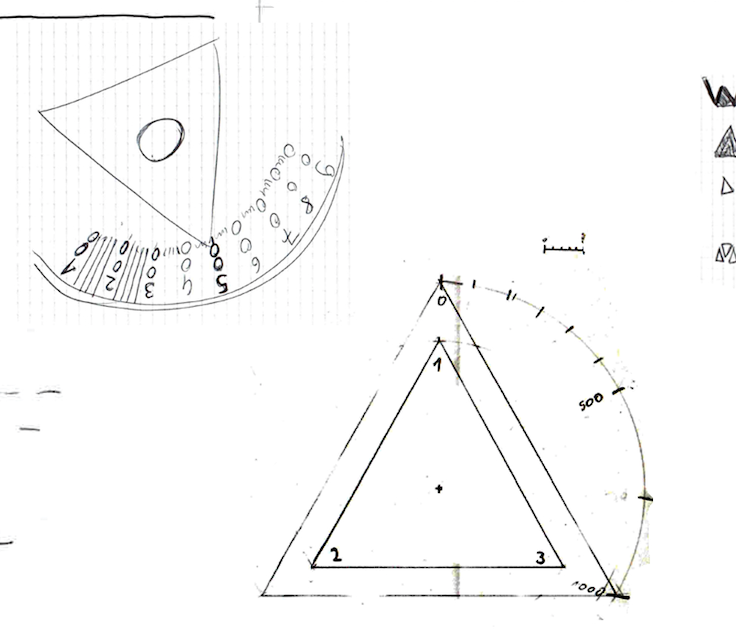 100
200
300
400
500
600
700
800
900
0
1
500
2
3
1000